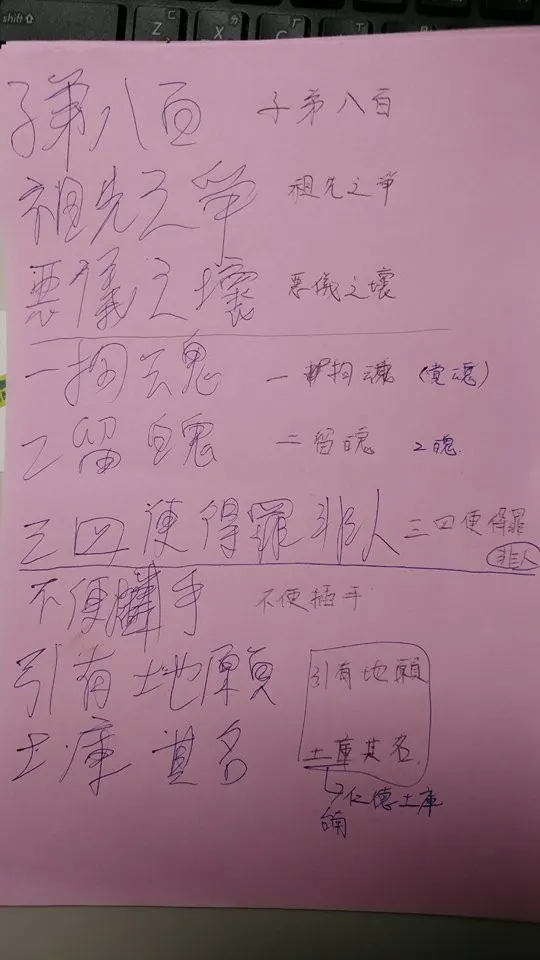 shift
Z X C
子弟八百 子弟八百
祖先之爭 祖先之爭
惡儀之壞 惡儀之壞
一拘魂 一拘魂 (覚魂)
2留魄 二留魄 2魄
三四便得罪非人 三四便得罪
非人
不便 手 不便插手
引有地願 引有地願
土庫其名 土庫其名
仁德土庫
台南